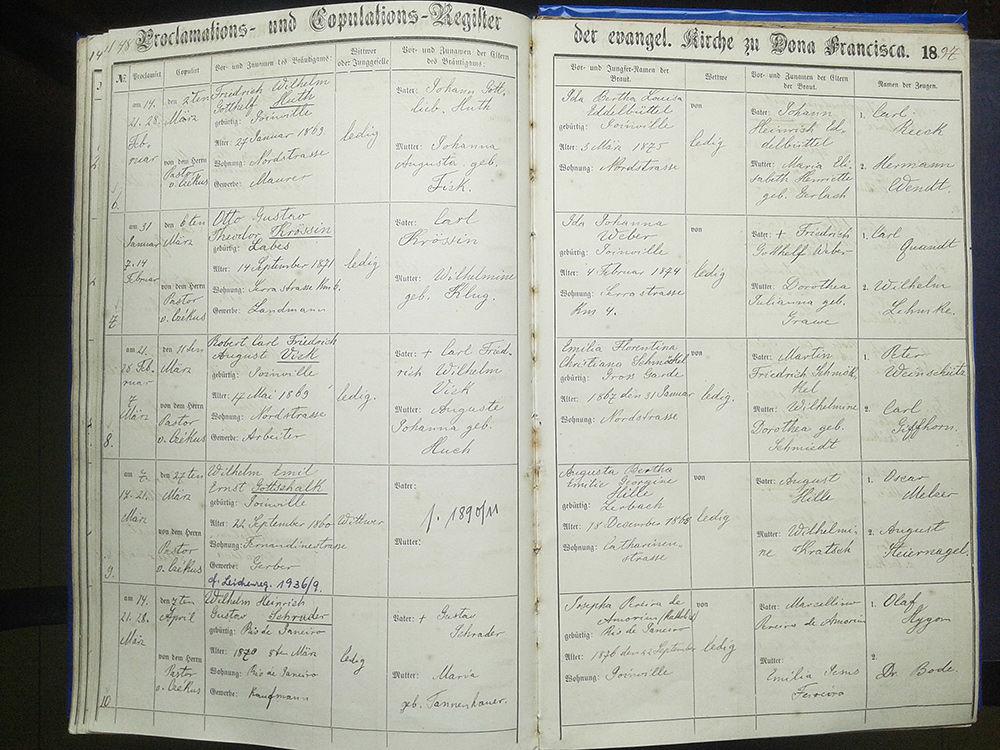 Proclamations- und Copulations-Register
der evangel. Kirche zu Dona Francisca. 1897
№ Proclamirt Copulirt Vor- und Zunamen des Bräutigams: Wittwer oder Junggeselle Vor- und Zunamen der Eltern des Bräutigams:
Vor- und Jungfer-Namen der Braut. Wittwe Vor- und Zunamen der Eltern der Braut. Namen der Zeugen.
6.
am 14.
21. 28.
Februar
den 2ten
März
von dem Herrn
Pastor
Friedrich Wilhelm
Gotthelf Huth
gebürtig: Joinville
Alter: 27 Januar 1869
Wohnung: Nordstrasse
Gewerbe: Maurer
ledig
Vater: Johann Gottlieb. Huth
Mutter: Johanna
Augusta. geb.
Fisk.
Ida Bertha Louisa
Eddelbüttel
gebürtig: Joinville
Alter: 3 März 1875
Wohnung: Nordstrasse
von
ledig
Vater: Johann
Heinrich Ed-
delbüttel
Mutter: Maria Eli-
sabeth Henriette
geb. Gerlach
1. Carl
Keeck
2. Hermann
Wendt.
7.
am 31
Januar
7. 14
Februar
den 6ten
März
von dem Herrn
Pastor
Otto Gustav
Theodor Krössin
gebürtig: Labes
Alter: 14 September 1871
Wohnung: Serrastrasse Km 6.
Gewerbe: Landmann
ledig
Vater: Carl
Krössin
Mutter: Wilhelmine
geb. Klug.
Ida Johanna
Weber
gebürtig: Joinville
Alter: 4 Februar 1874
Wohnung: Serrastrasse
Km 4.
von
ledig
Vater: + Friedrich
Gotthelf Weber
Mutter: Dorothea
Julianna geb.
Grawe
1. Carl
Quandt
2. Wilhelm
Lehmke.
8.
am 21.
28 Feb-
ruar
7
März
den 11ten
März
von dem Herrn
Pastor
Robert Carl Friedrich
August Vick
gebürtig: Joinville
Alter: 17 Mai 1869
Wohnung: Nordstrasse
Gewerbe: Arbeiter
ledig.
Vater: + Carl Fried-
rich Wilhelm
Vick
Mutter: Auguste
Johanna geb.
Huch
Emilia Florentina
Christiana Schmökel
gebürtig: Gross Garde
Alter: 1867 den 31 Januar
Wohnung: Nordstrasse
von
ledig.
Vater: Martin
Friedrich Schmök-
kel
Mutter: Wilhelmine
Dorothea geb.
Schmiedt
1. Peter
Weinschütz
2. Carl
Giffhorn.
9.
am 7.
14. 21.
März
den 27ten
März
von dem Herrn
Pastor
Wilhelm Emil
Ernst Gottschalk
gebürtig: Joinville
Alter: 22 September 1860
Wohnung: Fernandinestrasse
Gewerbe: Gerber
cf. Leichenreg. 1936/9.
Wittwer
Vater:
f. 1890/11
Mutter:
Augusta Bertha
Emilie Georgine
Hille
gebürtig: Lerbach
Alter: 18 Dezember 1868
Wohnung: Catharinen-
strasse
von
ledig
Vater: August
Hille
Mutter: Wilhelmi-
ne Kratsch
1. Oscar
Melzer
2. August
Steiernagel.
10
am 14.
21. 28.
März
den 7ten
April
von dem Herrn
Pastor
Wilhelm Heinrich
Gustav Schrader
gebürtig: Rio de Janeiro
Alter: 1870 8ten März
Wohnung: Rio de Janeiro
Gewerbe: Kaufmann
ledig
Vater: + Gustav
Schrader
Mutter: Maria
geb. Tannenhauer.
Josepha Pereira de
Amorim
gebürtig: Rio de Janeiro
Alter: 1876 den 22 September
Wohnung: Joinville
von
ledig
Vater: Marcellino
Pereira de Amorim
Mutter:
Emilia
Ferreira
1. Olaf
Nygon
2.
Dr. Bode.